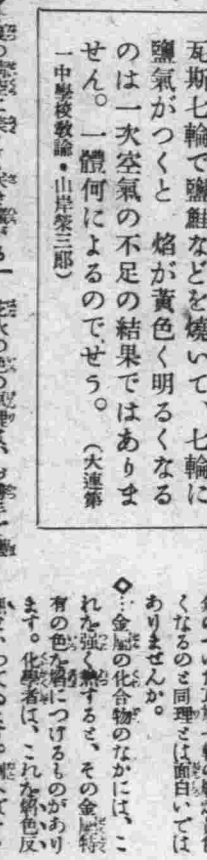 瓦斯七輪で鹽鮭などを燒いて、七輪に
鹽氣がつくと 焰が黃色く明るくなる
のは一次空氣の不足の結果ではありま
せん。一體何によるのでせう。（大連第
一中學校敎諭・山岸榮三郎）
くなるのと同理とは面白いでは
ありませんか。
◇…金屬の化合物のなかには、こ
れを强く熱すると、その金屬特
有の色を焰につけるものがあり
ます。化學者は、これを焰色反